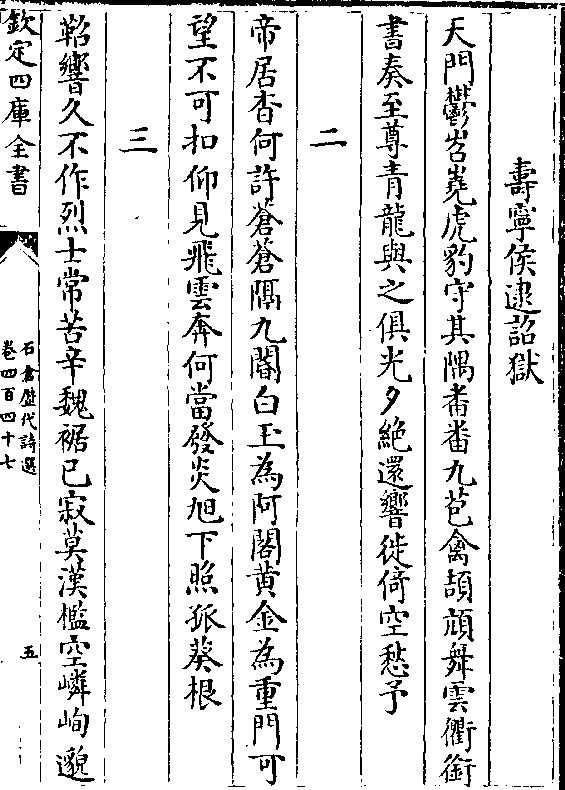 壽寧侯逮詔獄
天門鬱岧嶤虎豹守其隅番番九苞禽頡頏舞雲衢銜
書奏至尊青龍與之俱光夕絶還響徙倚空愁予
二
帝居杳何許蒼蒼隔九閽白玉為阿閣黄金為重門可
望不可扣仰見飛雲奔何當發炎旭下照孤葵根
三
鞀響久不作烈士常苦辛魏裾已寂莫漢檻空嶙峋邈
欽定四庫全書
石倉歷代詩選
卷四百四十七
五